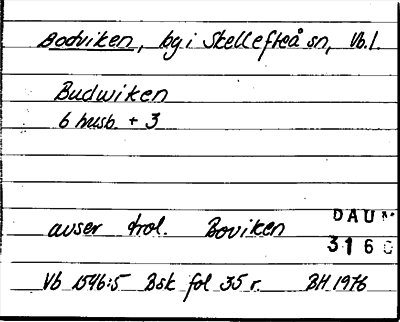 Bodviken, by i Skellefteå sn, Vb. l.
Budwiken
6 husb. + 3
avser trol. Boviken
DAUM
3160
Vb 1546:5 Bsk fol 35 r. BH 1976